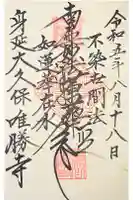 令和五年八月十八日
不染世間法
南無妙法蓮華経
如蓮華在水
身延大久保 唯勝寺